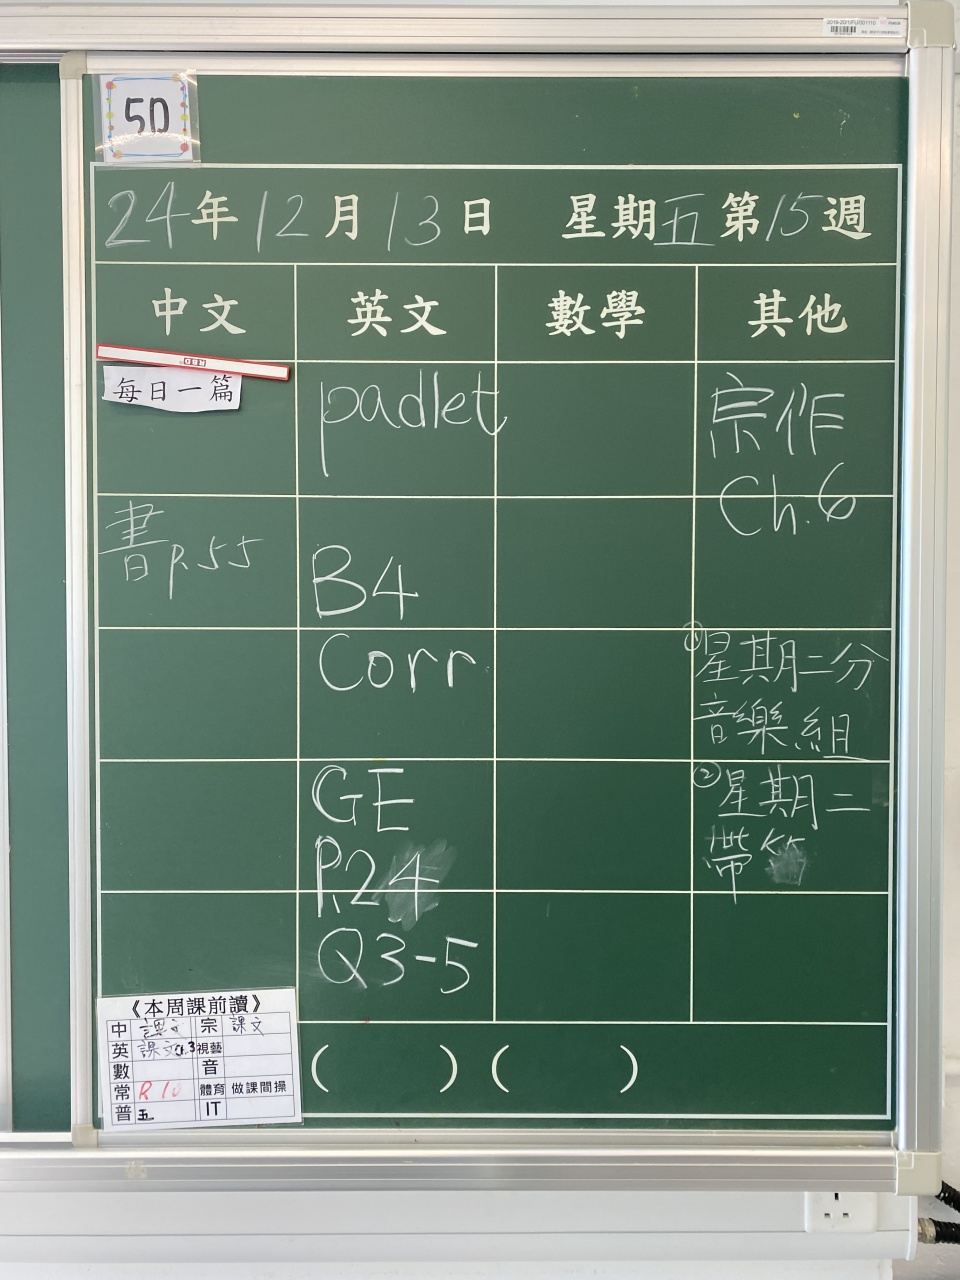 5D
24年12月13日 星期五第15週
中文 英文 數學 其他
每日一篇
書P.55
padlet
B4
Corr
GE
P.24
Q3-5
宗作
Ch.6
①星期二分
音樂組
②星期二
帶
( ) ( )
《本周課前讀》
中 課文 宗 課文
英 課文 視藝
數 音
常 體育 做課間操
普 五 IT